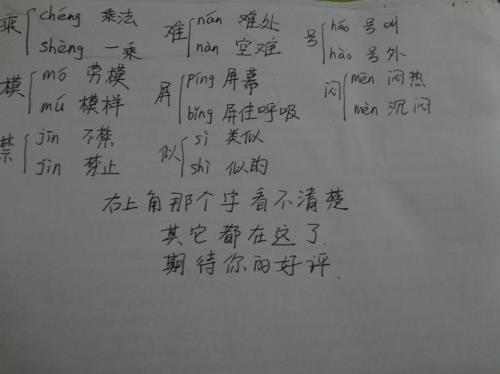 乘 chéng 乘法 难 nán 难处 号 háo 号叫
shèng 一乘 nàn 空难 hào 号外
模 mó 劳模 屏 píng 屏幕 闷 mēn 闷热
mú 模样 bǐng 屏住呼吸 mèn 沉闷
禁 jīn 不禁 似 sì 类似
jìn 禁止 shì 似的
右上角那个字看不清楚
其它都在这了.
期待你的好评.